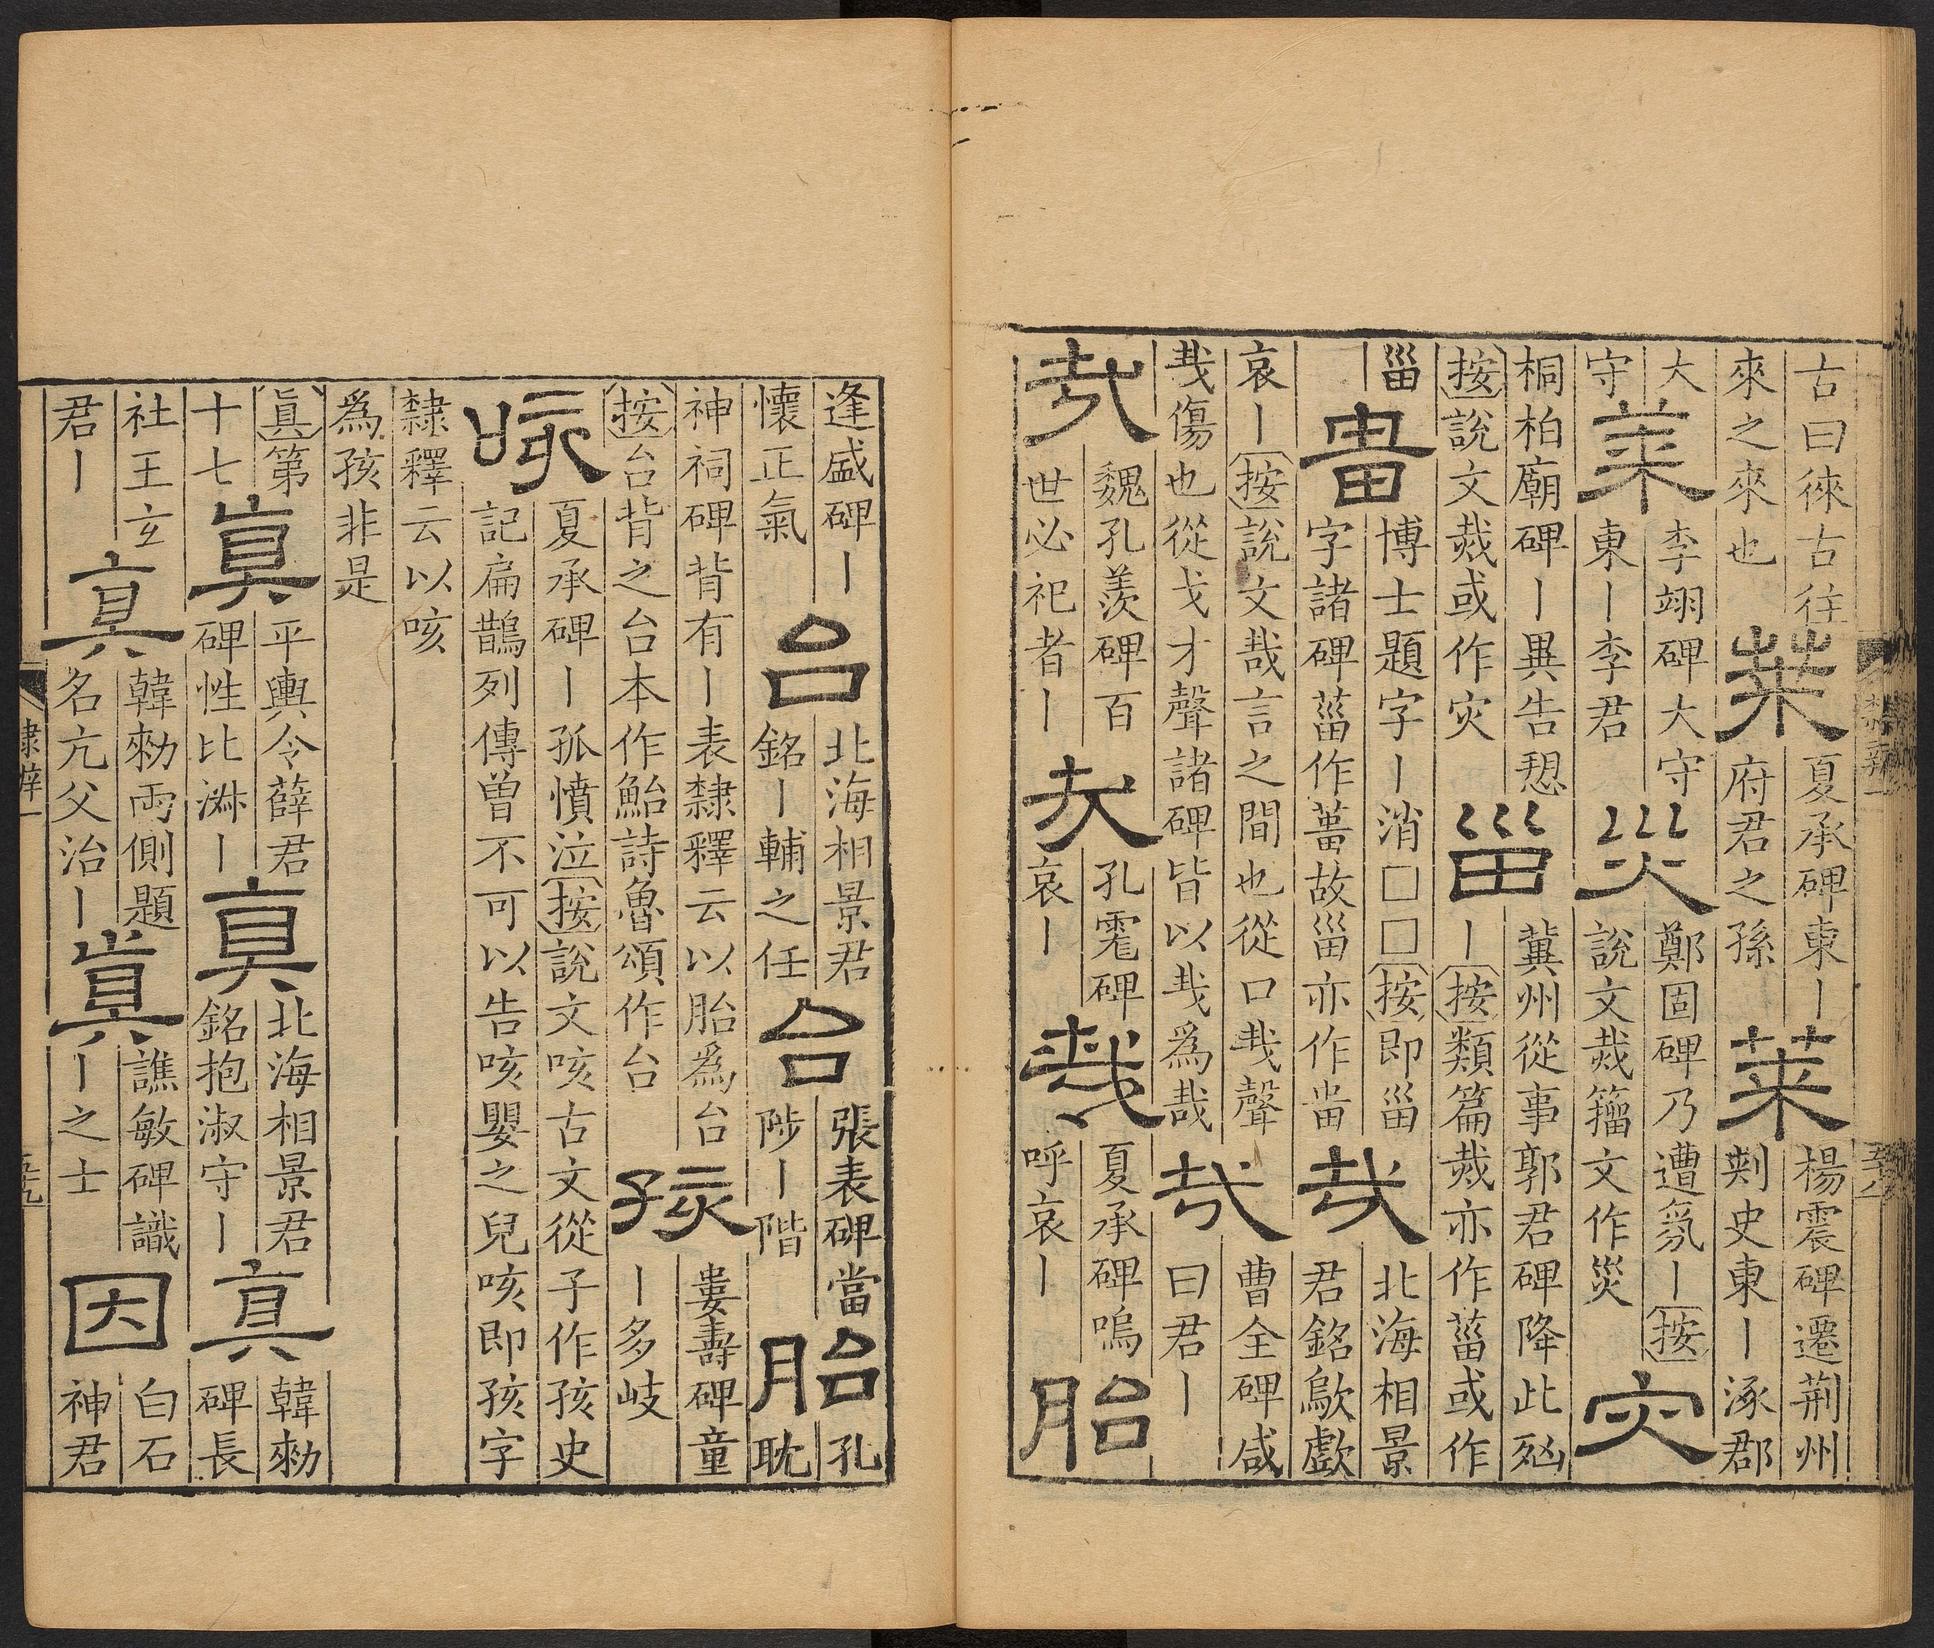 古曰徠古往
來之來也
萊
夏承碑東｜
府君之孫
萊
楊震碑遷荊州
刺史東｜涿郡
大
守
萊
李翊碑大守
東｜李君
災
鄭固碑乃遭氛｜按
說文烖籒文作災
灾
桐柏廟碑｜異告愬
按說文烖或作灾
甾
冀州從事郭君碑降此㐫
｜按類篇烖亦作葘或作
甾
畗
博士題字｜消□□按即甾
字諸碑葘作𦿊故甾亦作畓
哉
北海相景
君銘歍歔
哀｜按說文哉言之間也從口𢦏聲
𢦏傷也從戈才聲諸碑皆以𢦏爲哉
哉
曹全碑咸
曰君｜
哉
魏孔羨碑百
世必祀者｜
𢦏
孔宙碑
哀｜
哉
夏承碑嗚
呼哀｜
胎
逢盛碑｜
懷正氣
台
北海相景君
銘｜輔之任
台
張表碑當
陟｜階
胎
孔
耽
神祠碑背有｜表隸釋云以胎爲台
按台背之台本作鮐詩魯頌作台
孩
婁壽碑童
｜多岐
咳
夏承碑｜孤憤泣按說文咳古文從子作孩史
記扁鵲列傳曾不可以告咳嬰之兒咳即孩字
隸釋云以咳
爲孩非是
眞第
十七
眞
平輿令薛君
碑性比淋｜
真
北海相景君
銘抱淑守｜
真
韓勑
碑長
社王玄
君｜
真
韓勑兩側題
名亢父治｜
眞
譙敏碑識
｜之士
因
白石
神君
隸辨一
五十九